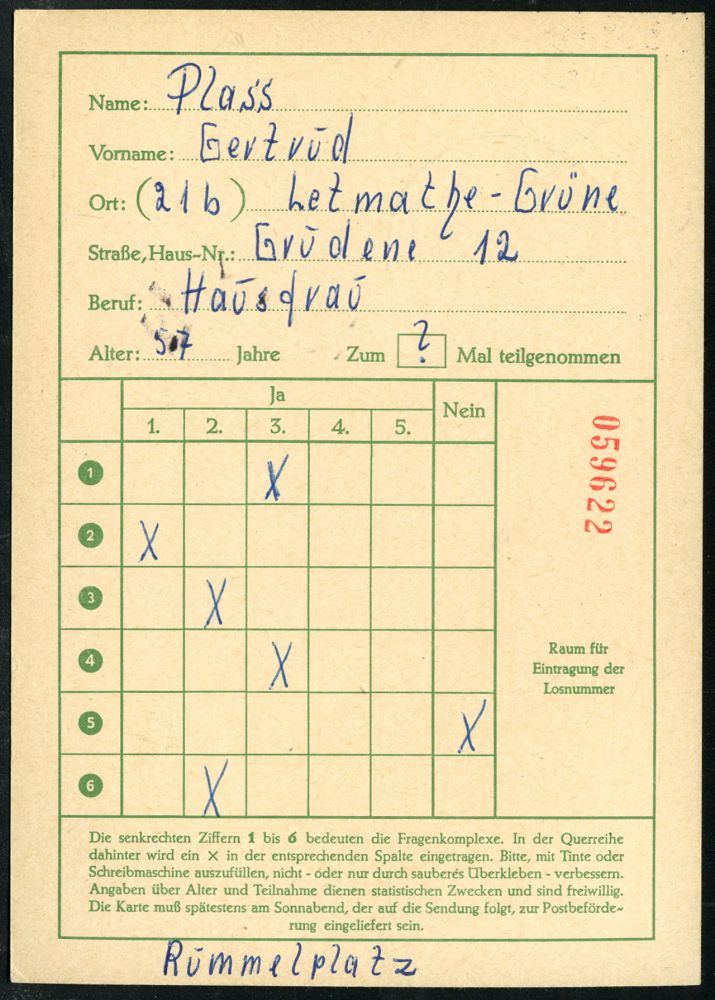 Name: Plass
Vorname: Gertrud
Ort: (21b) Letmathe-Grüne
Straße, Haus-Nr.: Grüdene 12
Beruf: Hausfrau
Alter: 57 Jahre Zum ? Mal teilgenommen
Ja
Nein
1. 2. 3. 4. 5.
1 X
2 X
3 X
4 X
5 X
6 X
059622
Raum für
Eintragung der
Losnummer
Die senkrechten Ziffern 1 bis 6 bedeuten die Fragenkomplexe. In der Querreihe
dahinter wird ein × in der entsprechenden Spalte eingetragen. Bitte, mit Tinte oder
Schreibmaschine auszufüllen, nicht - oder nur durch sauberes Überkleben - verbessern.
Angaben über Alter und Teilnahme dienen statistischen Zwecken und sind freiwillig.
Die Karte muß spätestens am Sonnabend, der auf die Sendung folgt, zur Postbeförde-
rung eingeliefert sein.
Rummelplatz